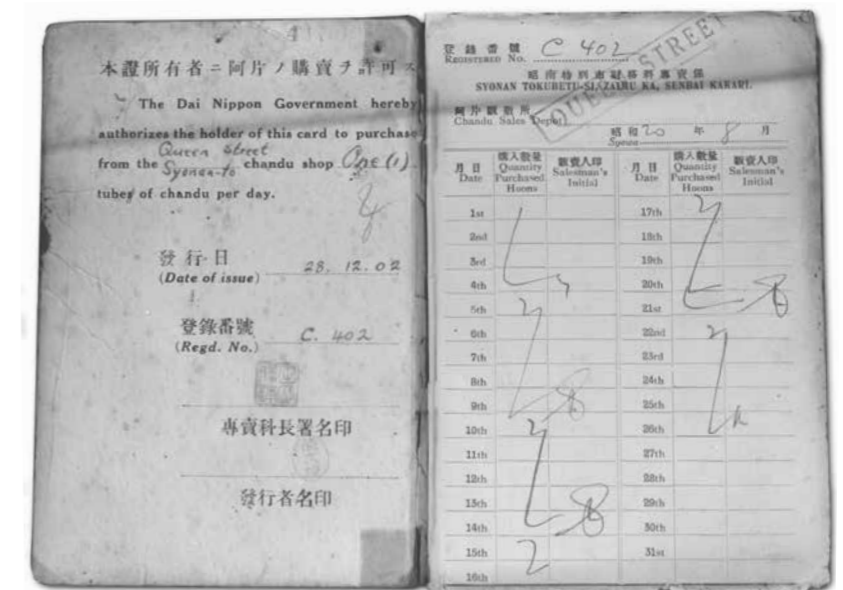 本證所有者ニ阿片ノ購賣ヲ許可ス
The Dai Nippon Government hereby
authorizes the holder of this card to purchase
Queen Street
from the Syonan-to chandu shop One (1)
tubes of chandu per day.
發行日
(Date of issue) 28. 12. 02
登錄番號
(Regd. No.) C. 402
專賣科長署名印
發行者名印
登錄番號
REGISTERED No. C 402
QUEEN STREET
昭南特別市財務科專賣係
SYONAN TOKUBETU-SI, ZAIMU KA, SENBAI KAKARI.
阿片販賣所
Chandu Sales Depot)
昭和20年8月
Syowa
月日 購入數量 販賣人印 月日 購入數量 販賣人印
Date Quantity Purchased Hoons Salesman's Initial Date Quantity Purchased Hoons Salesman's Initial
1st 17th 2
2nd 18th
3rd 19th
4th 20th
5th 2 21st
6th 22nd 2
7th 23rd
8th 24th
9th 25th
10th 2 26th
11th 27th
12th 28th
13th 29th
14th 30th
15th 2 31st
16th